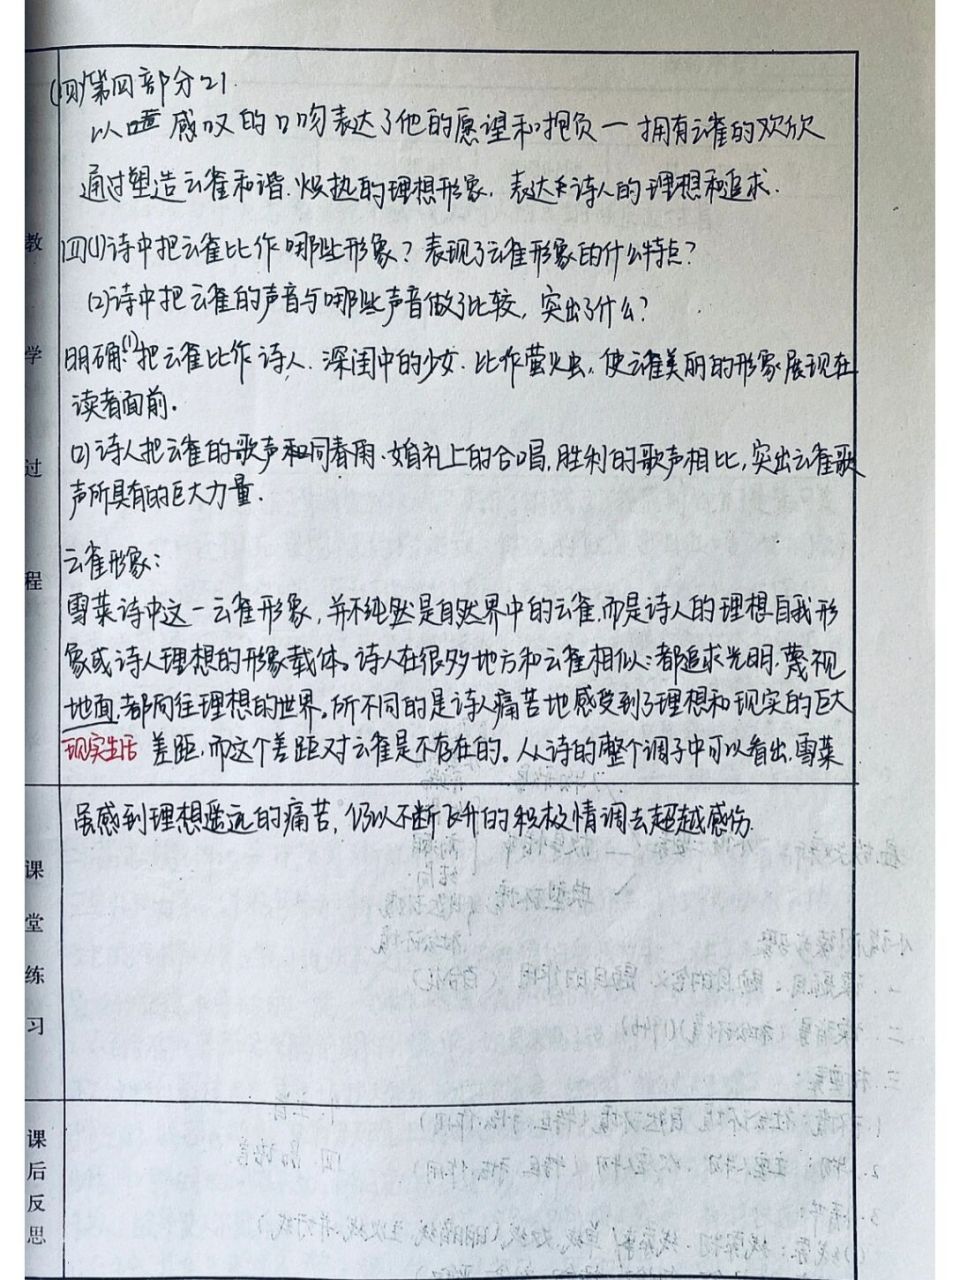 (四)第四部分21
以噻感叹的口吻表达了他的愿望和抱负一拥有云雀的欢欣
通过塑造云雀和谐、炽热的理想形象,表达诗人的理想和追求.
四(1)诗中把云雀比作哪些形象?表现了云雀形象的什么特点?
(2)诗中把云雀的声音与哪些声音做了比较,突出了什么?
明确:(1)把云雀比作诗人、深闺中的少女、比作萤火虫,使云雀美丽的形象展现在
读者面前.
(2)诗人把云雀的歌声和同春雨、婚礼上的合唱,胜利的歌声相比,突出云雀歌
声所具有的巨大力量.
云雀形象:
雪莱诗中这一云雀形象,并不纯然是自然界中的云雀,而是诗人的理想自我形
象或诗人理想的形象载体。诗人在很多地方和云雀相似:都追求光明,蔑视
地面,都向往理想的世界。所不同的是诗人痛苦地感受到了理想和现实的巨大
现实生活
差距,而这个差距对云雀是不存在的。从诗的整个调子中可以看出,雪莱
虽感到理想遥远的痛苦,仍以不断飞升的积极情调去超越感伤.
教
学
过
程
课
堂
练
习
课
后
反
思